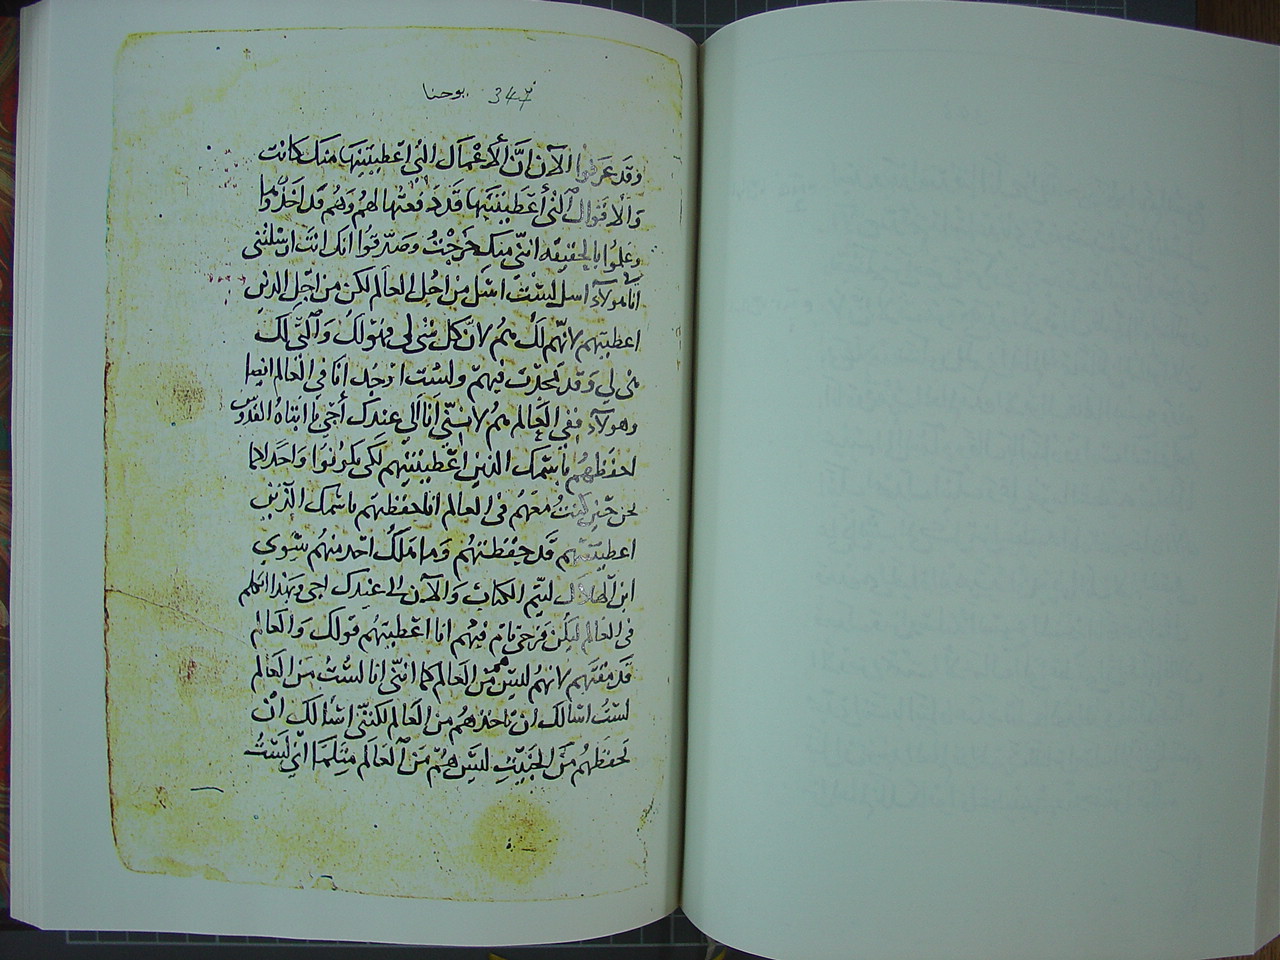 يوحنا 347
وقد عرفوا الآن انّ ألأعْمَال التي اعْطيتَنِيها منك كانت
وَألاقوال ٱلتي أعْطَيْتَنَيها قَد دَفعتُها لهُم وَهُم قَد اخَذُوها
وعَلموا بالحقيقه انني منك خَرَجْتُ وصَدّقوا انك انتَ ارْسَلتني
انا مولاء اسل ليسْت اسَل من اجْل العالم لكن من اجْل الذين
اعطيتهم لانّهم لك هُم لانّ كل شي لي فهُوَ لكَ وَٱلتي لك
هي لي وَقد تمجّدْتَ فيهمْ ولسْت اوْجُد انَا في الْعالم ايضا
وهولآء ففي العَالم هُم لانني انا الى عندك أجي يا ابَتاهُ القدّوس
احفَظهُم باسْمك الذين اعْطيْتنيهم لكي يكونوُا وَاحدًا كما
نحن حَين كنْتُ معَهُم في العالم انا حفظتهم باسْمك الذين
اعطيتنيهم قَد حَفِظتهُم وَما هَلَكَ احَد منهُم سِوي
ابن الهَلاك ليتم الكتاب وَالآن الى عِندك اجي وَبهذا اتكلم
في العَالم ليكُن فَرَحي تام فيهُم انا اعطيتهُم قولك وَالعَالم
قَد مقتَهم لانهُم ليسَ هم مِّن العَالم كما انّني انا لسْتُ مَن العَالم
لسْتُ اسْالك انْ تاخذهُم من العَالم لكنني اسْالك انْ
تَحفظهُم مَن الخَبيث ليسَ هُمْ مَن العَالمَ مثلمَا اني لَسْتُ